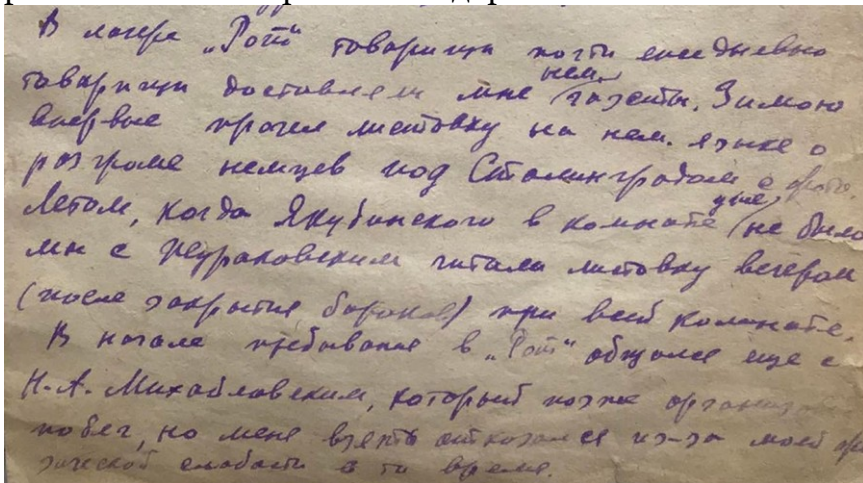 В лагере „Рот" товарищи почти ежедневно
товарищи доставляли мне нем. газеты. Зимою
впервые прочел листовку на нем. языке о
разгроме немцев под Сталинградом с фото.
Летом, когда Якубинского в комнате уже не было
мы с Жураковским читали листовку вечером
(после закрытия бараков) при всей комнате.
В начале пребывания в „Рот" общался еще с
Н.А. Михайловским, который позже организо
побег, но меня взять отказался из-за моей фи
зической слабости в то время.